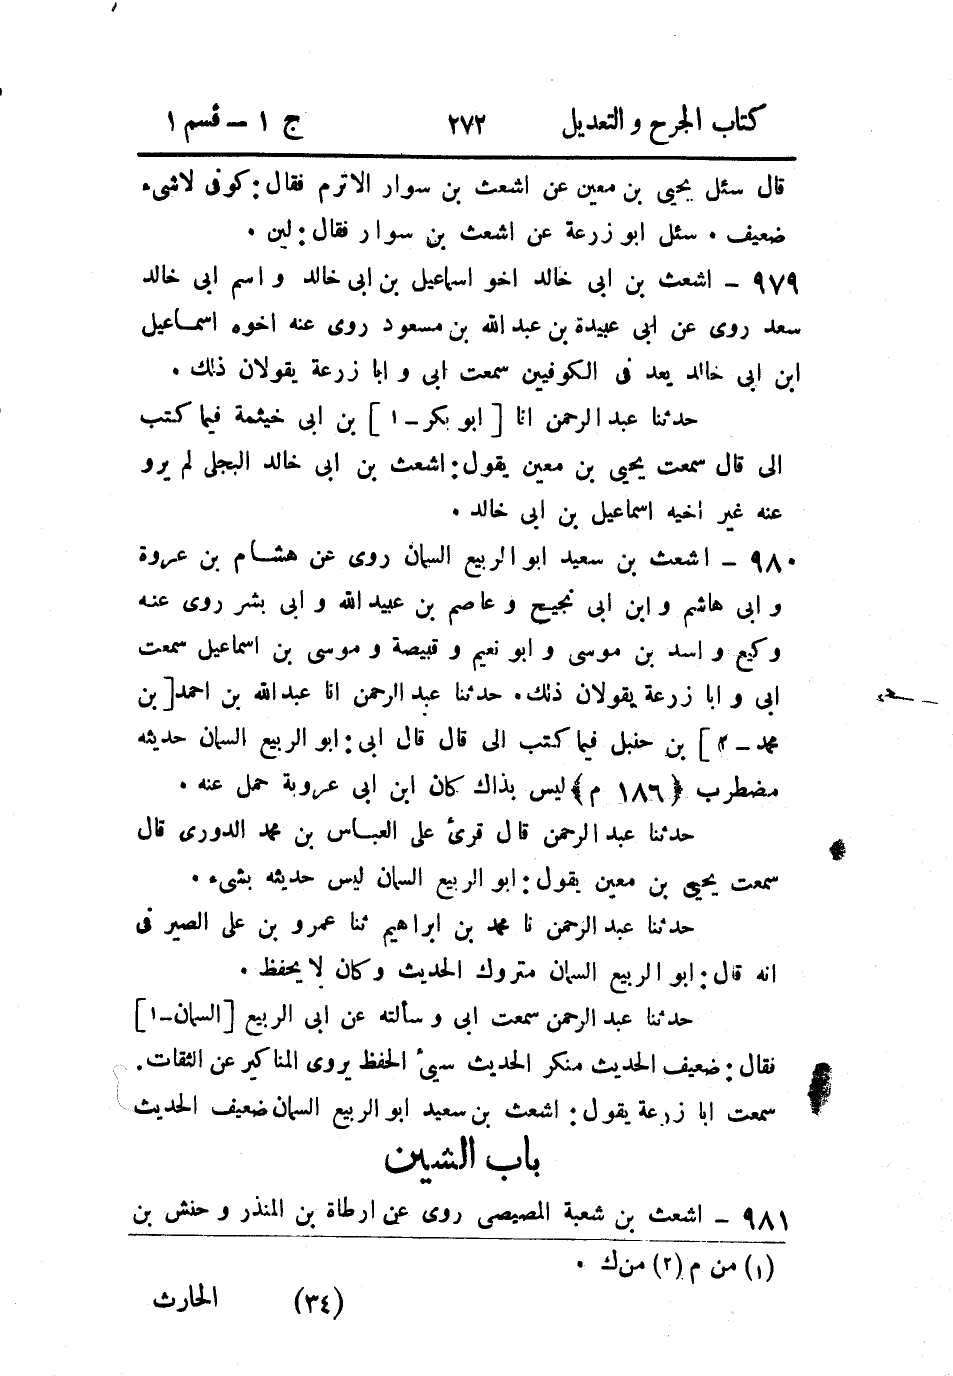 كتاب الجرح و التعديل ٢٧٢ ج ١ – قسم ١
قال سئل يحيى بن معين عن اشعث بن سوار الاثرم فقال: كوفى لاشىء
ضعيف . سئل ابو زرعة عن اشعث بن سوار فقال: لين .
٩٧٩ – اشعث بن ابى خالد اخو اسماعيل بن ابى خالد و اسم ابى خالد
سعد روى عن ابى عبيدة بن عبد الله بن مسعود روى عنه اخوه اسماعيل
ابن ابى خالد يعد فى الكوفيين سمعت ابى و ابا زرعة يقولان ذلك .
حدثنا عبد الرحمن انا [ ابو بكر – ١ ] بن ابى خيثمة فيما كتب
الى قال سمعت يحيى بن معين يقول: اشعث بن ابى خالد البجلى لم يرو
عنه غير اخيه اسماعيل بن ابى خالد .
٩٨٠ – اشعث بن سعيد ابو الربيع السمان روى عن هشام بن عروة
و ابى هاشم و ابن ابى نجيح و عاصم بن عبيد الله و ابى بشر روى عنه
وكيع و اسد بن موسى و ابو نعيم و قبيصة و موسى بن اسماعيل سمعت
ابى و ابا زرعة يقولان ذلك. حدثنا عبد الرحمن انا عبدالله بن احمد [ بن
محمد – ٢ ] بن حنبل فيما كتب الى قال قال ابى: ابو الربيع السمان حديثه
مضطرب ﴿١٨٦ م﴾ ليس بذاك كان ابن ابى عروبة حمل عنه .
حدثنا عبد الرحمن قال قرئ على العباس بن محمد الدورى قال
سمعت يحيى بن معين يقول: ابو الربيع السمان ليس حديثه بشىء .
حدثنا عبد الرحمن نا محمد بن ابراهيم ثنا عمرو بن على الصيرفى
انه قال: ابو الربيع السمان متروك الحديث وكان لا يحفظ .
حدثنا عبد الرحمن سمعت ابى و سألته عن ابى الربيع [ السمان – ١ ]
فقال: ضعيف الحديث منكر الحديث سيئ الحفظ يروى المناكير عن الثقات .
سمعت ابا زرعة يقول: اشعث بن سعيد ابو الربيع السمان ضعيف الحديث
باب الشين
٩٨١ – اشعث بن شعبة المصيصى روى عن ارطاة بن المنذر و حنش بن
(١) من م (٢) من ك .
(٣٤) الحارث